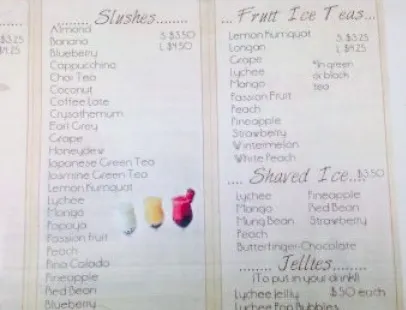 $3.25
$4.25
Slushes........
Almond
Banana S. $3.50
Blueberry L. $4.50
Cappuccino
Chai Tea
Coconut
Coffee Late
Crysathemum
Earl Grey
Grape
Honeydew
Japanese Green Tea
Jasmine Green Tea
Lemon Kumquat
Lychee
Mango
Papaya
Passion fruit
Peach
Pina Colada
Pineapple
Red Bean
Blueberry
.... Fruit Ice Teas...
Lemon Kumquat S. $3.25
Longan L. $4.25
Grape
Lychee *In green
Mango or black
Passion Fruit tea
Peach
Pineapple
Strawberry
Wintermelon
White Peach
..... Shaved Ice.... $3.50
Lychee Pineapple
Mango Red Bean
Mung Bean Strawberry
Peach
Butterfinger-Chocolate
........ Jellies........
(To put in your drink!)
Lychee Jelly $.50 each
Lychee Pop Bubbles